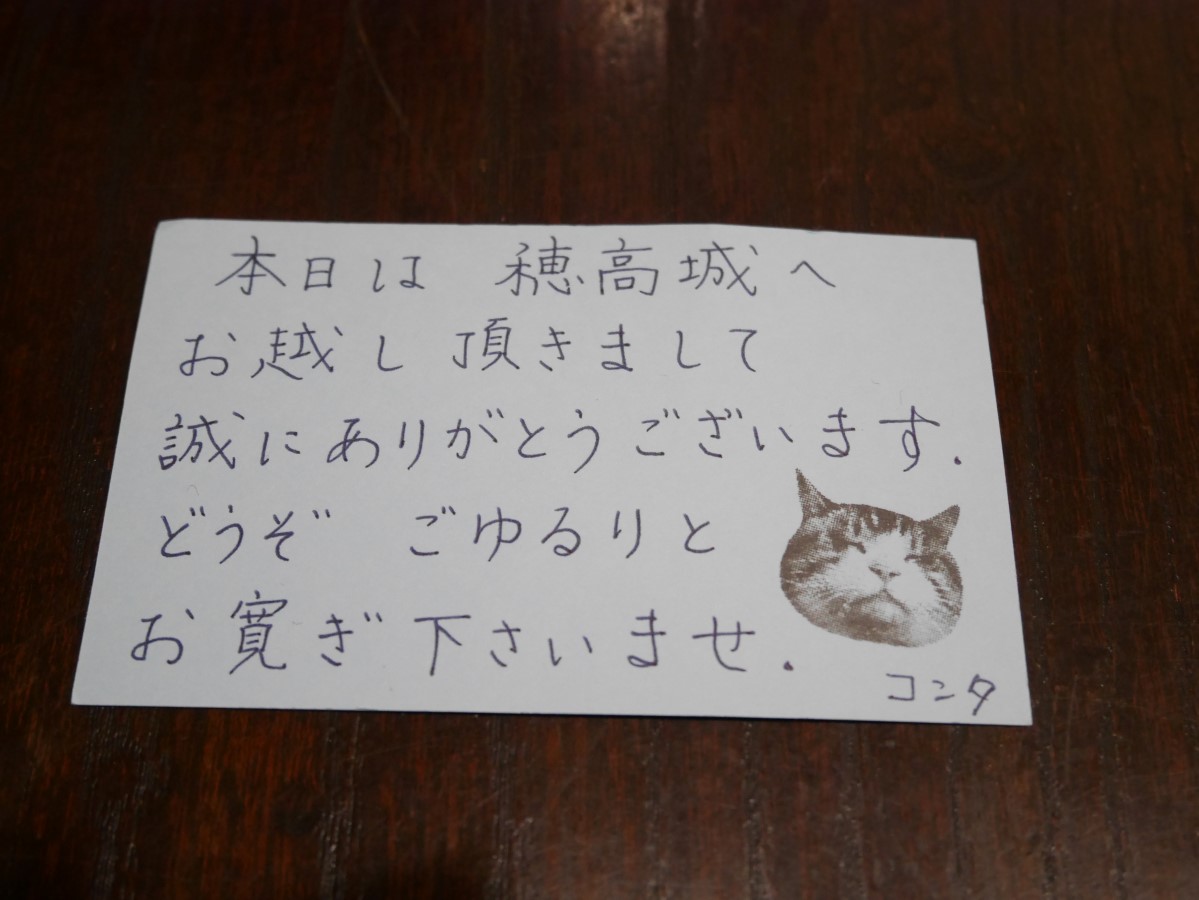 本日は 穂高城へ
お越し頂きまして
誠にありがとうございます.
どうぞ ごゆるりと
お寛ぎ下さいませ.
コンタ